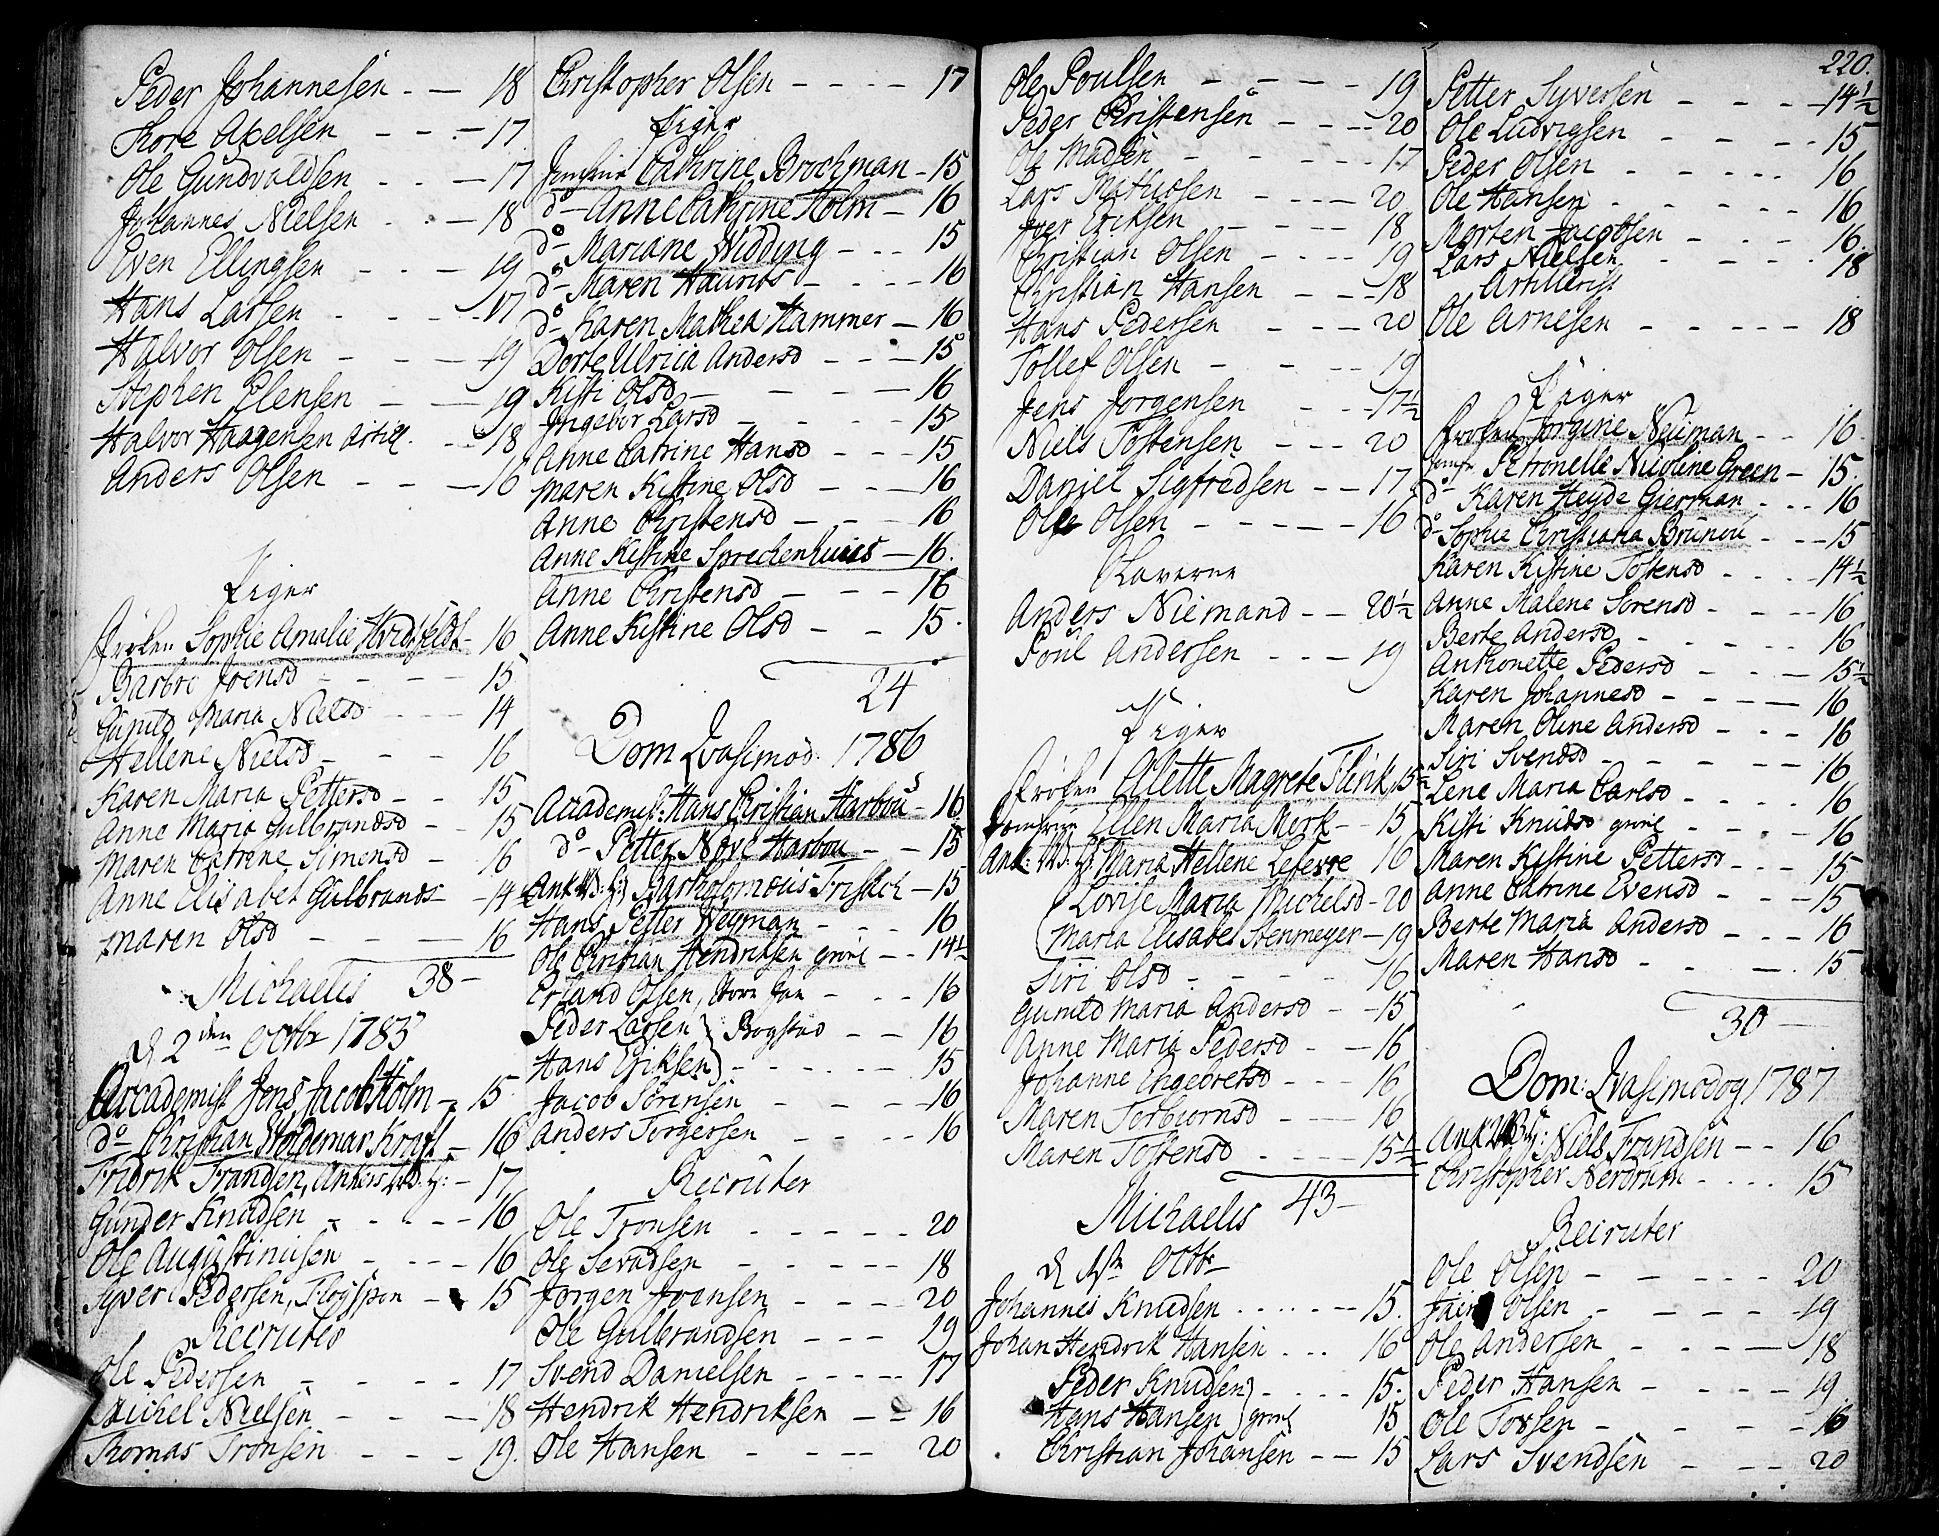 Peder Johannesen - - 18
Tore Axelsen - - - 17
Ole Gundvaldsen - - - 17
Johannes Nielsen - - - 18
Even Ellingsen - - - 19
Hans Larsen - - - 17
Halvor Olsen - - - 19
Stephen Elensen - - 19
Halvor Haagensen Artill. - 18
Anders Olsen - - - 16
Piger
Frøken Sophie Amalie Hvidfeldt - 16
Barbro Joensd - - - 15
Gunild Maria Nielsd - - - 14
Hellene Nielsd - - - 16
Karen Maria Pettersd - - 15
Anne Maria Gulbrandsd - - 15
Maren Catrene Simensd - 16
Anne Elisabet Gulbrands - 14
Maren Olsd - - - 16
Michaelis 38 -
d 2den Octbr 1785
Accademist Jens Jacob Holm - 15
do Christian Woldemar Kraft - 16
Fridrik Frandsen, Ankers W: H: - 17
Gunder Knudsen - - - 16
Ole Augustinusen - - - 16
Syver Pedersen, Fløyspion - 15
Recruter
Ole Pedersen - - - 17
Michel Nielsen - - - 18
Thomas Tronsen - - - 19.
Christopher Olsen - - - - 17
Piger
Jomfrue Cathrine Brochman - 15
do - Anne Cathrine Holm - 16
do - Mariane Widding - - - 15
do - Maren Hauritz - - - - 16
do - Karen Mathea Hammer - 16
Dorte Ulrica Andersd - - - 15
Kisti Olsd - - - - 16
Ingebor Larsd - - - - 15
Anne Catrine Hansd - - - 15
Maren Kistine Olsd - - - 16
Anne Christensd - - - 16
Anne Kistine Spreckenhuus - 16.
Anne Christensd - - - 16
Anne Kistine Olsd - - 15.
24
Dom Qvasimod: 1786
Accademist: Hans Christian Harbou - 16
do - Petter Nore Harbou - - 15
Ank: W: H: Bartholomæus Frisach - 15
Hans Petter Neyman - - - 16
Ole Christian Hendriksen - - 14½
Erland Olsen, - - - 16
Peder Larsen } Bogstad - - 16
Hans Eriksen } - - - - 15
Jacob Sørensen - - - 16
Anders Torgersen - - - 16
Recruter
Ole Tronsen - - - - - 20
Ole Sevadsen - - - - - 18
Jørgen Joensen - - - - 20
Ole Gulbrandsen - - - 19
Svend Danielsen - - - - - 17
Hendrik Hendriksen - - 16
Ole Hansen - - - - 20
Ole Poulsen - - - - 19
Peder Christensen - - - - 20
Ole Madsen - - - - - 17
Lars Mathissen - - - - 20
Iver Eriksen - - - - 18
Christian Olsen - - - 19
Christian Hansen - - - 18
Hans Pedersen - - - 20
Tollef Olsen - - - - 19
Jens Jørgensen - - - 17½
Niels Tostensen - - - 20
Daniel Sigfredsen - - 17
Ole Olsen - - - - - - 16
Slaverne
Anders Niemand - - 20½
Poul Andersen - - - 19
Piger
Frøken Alette Magrete Flink, 15½
Jomfrue Ellen Maria Mørk - 15
Ank: W: H: Maria Hellene Lefevre 16
Lovise Maria Michelsd - 20
Maria Elisabet Stenmeyer - 19
Siri Olsd - - - - 16
Gunild Maria Andersd - - 15
Anne Maria Pedersd - - 16
Johanne Engebretsd - - - 16
Maren Torbiørnsd - - - 16
Maren Tostensd - - - - 15½
Michaelis 43 -
d 1ste Octbr
Johannes Knudsen - - - - - - 15.
Johan Hendrik Hansen - - - 16
Peder Knudsen } - - - - 15.
Hans Hansen } 15
Christian Johansen - - 15
220.
Petter Syversen - - - - 14½
Ole Ludvigsen - - - - 15
Peder Olsen - - - - - 16
Ole Hansen - - - - - 16
Morten Jacobsen - - - 16.
Lars Nielsen - - - - 18
Artillerist
Ole Arnesen - - - - - 18
Piger
Frøken Jørgine Neuman - - 16.
Jomfr Petronelle Nicoline Green - 15.
do - Karen Heyde Gierman - - - 16
do - Sophie Christiana Brunou - - - 15
Karen Kistine Tostensd - - - - 14½
Anne Malene Sorensd - - - - 16
Berte Andersd - - - - - 16
Anthonette Pedersd - - - - 15½
Karen Johannesd - - - - - 16
Maren Oline Andersd - - - 16
Siri Svendsd - - - - - - 16
Lene Maria Carlsd - - - - 16
Kisti Knudsd - - - - 16
Maren Kistine Pettersd - - - 15
Anne Catrine Evensd - - - - 15
Berte Maria Andersd - - - 16
Maren Hansd - - - - . 15
30 -
Dom: Qvasimodog 1787
Ank: W: H: Niels Frandsen - - 16
Christopher Nerdrum - - - - 15
Recruter
Ole Olsen - - - - - 20
Olsen - - - - - 19
Ole Andersen - - - - 18
Peder Hansen - - - - 19
Ole Torsen - - - - - 16
Lars Svendsen - - - - 20